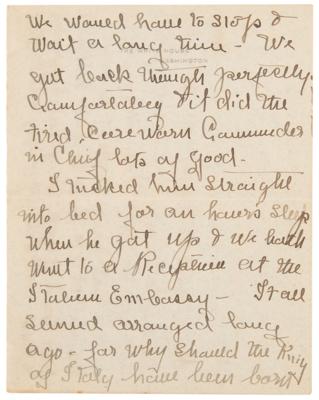 We would have to stop &
THE WHITE HOUSE
WASHINGTON
Wait a long time - We
got back though perfectly
Comfortabley & it did the
tired Careworn Commander
in Chief lots of Good. -
I tucked him straight
into bed for an hours sleep
When he got up & we both
Went to a Reception at the
Italian Embassy - It all
Seemed arranged long
ago - for why should the King
of Italy have been born